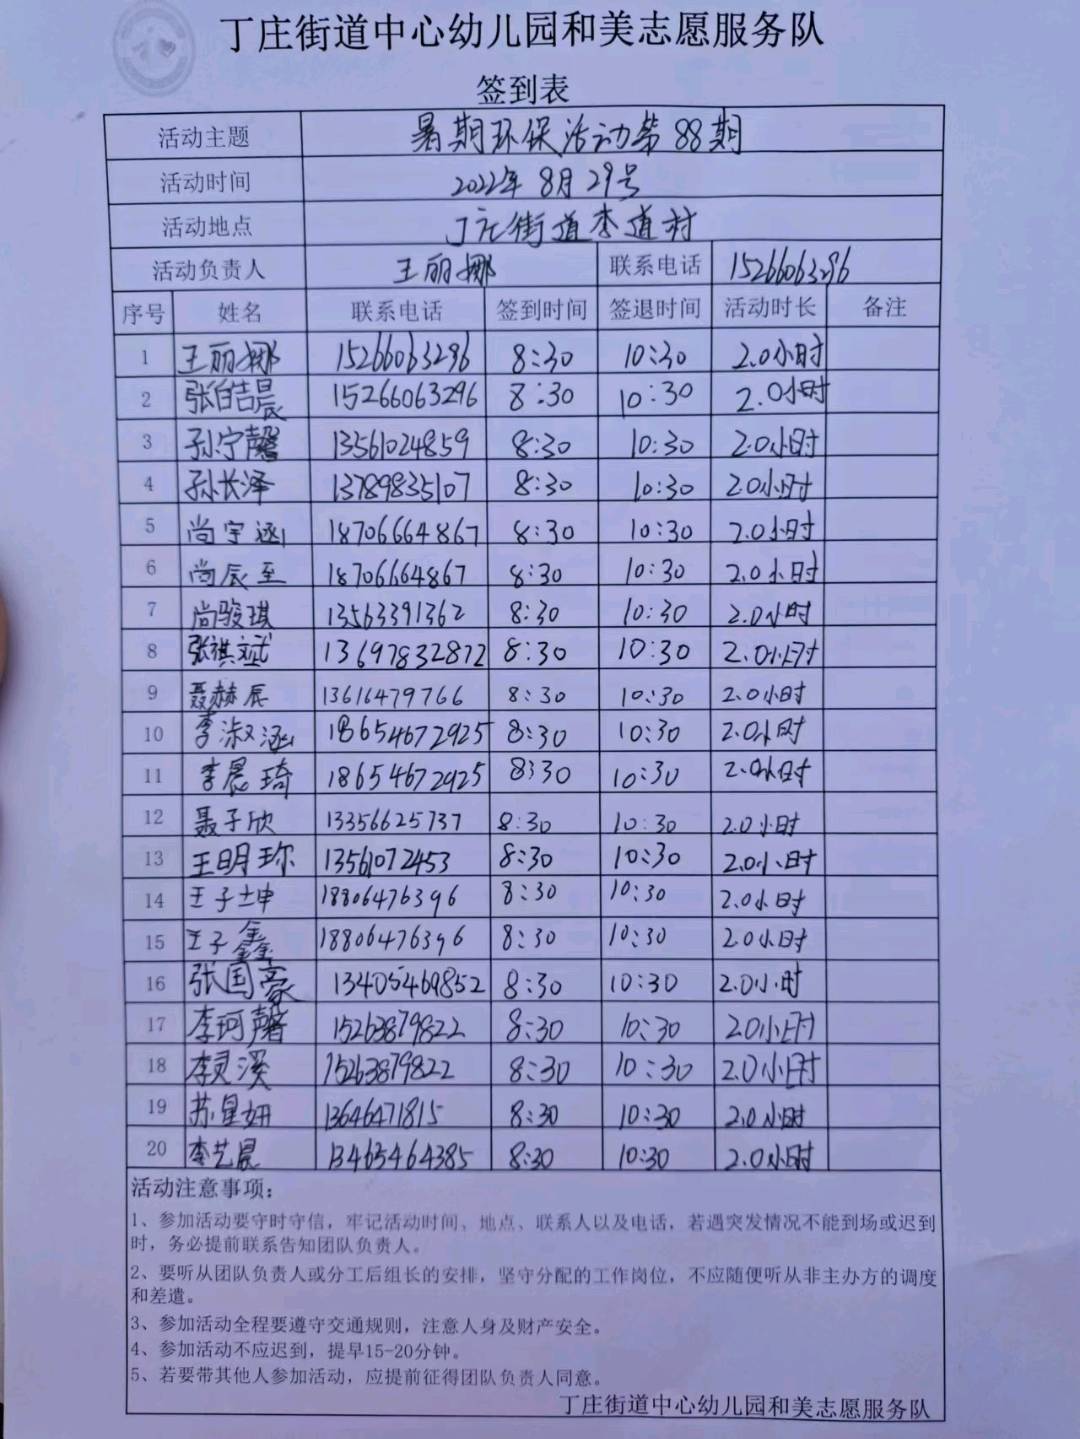 丁庄街道中心幼儿园和美志愿服务队
签到表
活动主题 暑期环保活动第88期
活动时间 2022年8月29号
活动地点 丁庄街道李道村
活动负责人 王丽娜 联系电话 15266063296
序号 姓名 联系电话 签到时间 签退时间 活动时长 备注
1 王丽娜 15266063296 8:30 10:30 2.0小时
2 张皓晨 15266063296 8:30 10:30 2.0小时
3 孙宁馨 13561024859 8:30 10:30 2.0小时
4 孙长泽 13789835107 8:30 10:30 2.0小时
5 尚宇涵 18706664867 8:30 10:30 2.0小时
6 尚辰至 18706664867 8:30 10:30 2.0小时
7 尚骏琪 13563391362 8:30 10:30 2.0小时
8 张祺斌 13697832872 8:30 10:30 2.0小时
9 聂赫辰 13616479766 8:30 10:30 2.0小时
10 李淑涵 18654672925 8:30 10:30 2.0小时
11 李晨琦 18654672925 8:30 10:30 2.0小时
12 聂子欣 13356625737 8:30 10:30 2.0小时
13 王明珎 13561072453 8:30 10:30 2.0小时
14 王子坤 18806476396 8:30 10:30 2.0小时
15 王子鑫 18806476396 8:30 10:30 2.0小时
16 张国豪 13405469852 8:30 10:30 2.0小时
17 李珂馨 15263879822 8:30 10:30 2.0小时
18 李灵溪 15263879822 8:30 10:30 2.0小时
19 苏星妍 13646471815 8:30 10:30 2.0小时
20 李艺晨 13465464385 8:30 10:30 2.0小时
活动注意事项：
1、参加活动要守时守信，牢记活动时间、地点、联系人以及电话，若遇突发情况不能到场或迟到
时，务必提前联系告知团队负责人。
2、要听从团队负责人或分工后组长的安排，坚守分配的工作岗位，不应随便听从非主办方的调度
和差遣。
3、参加活动全程要遵守交通规则，注意人身及财产安全。
4、参加活动不应迟到，提早15-20分钟。
5、若要带其他人参加活动，应提前征得团队负责人同意。
丁庄街道中心幼儿园和美志愿服务队